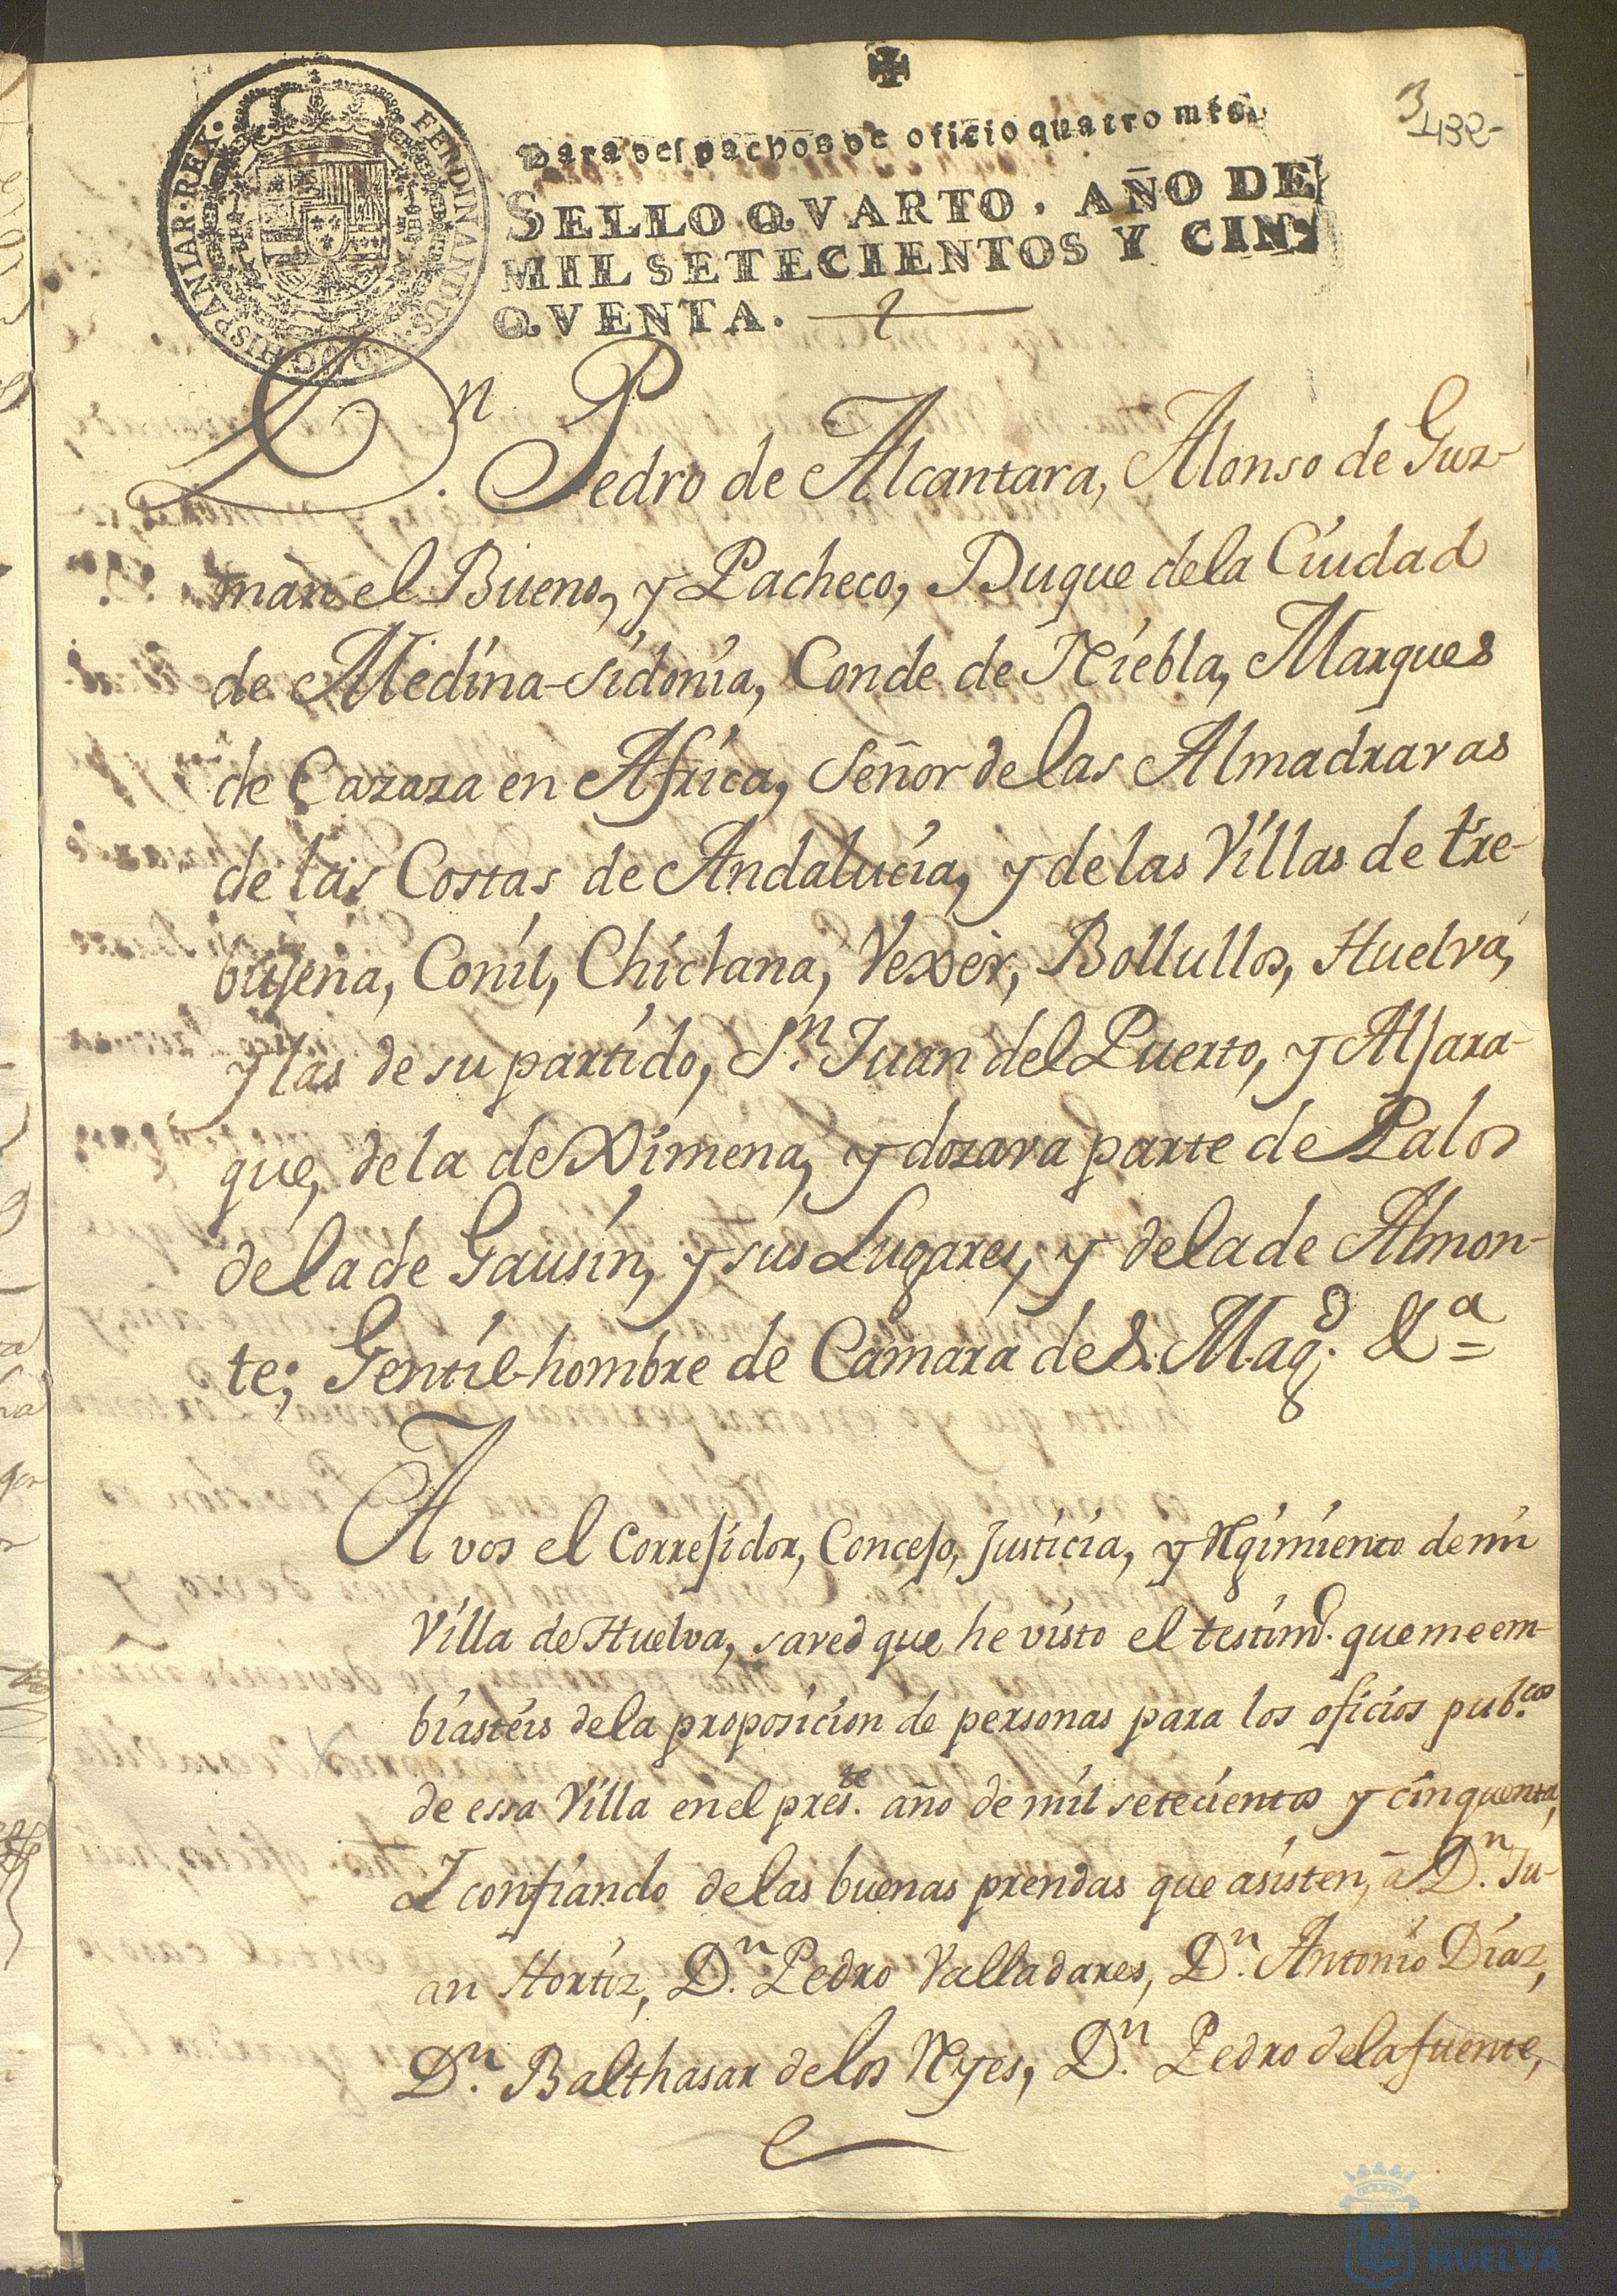 ✠
3
432
Para despachos de oficio quatro mrs.
SELLO QVARTO, AÑO DE
MIL SETECIENTOS Y CIN-
QVENTA.
FERDINANDUS·VI·D·G·HISPANIAR·REX·
Dn. Pedro de Alcantara, Alonso de Guz-
man el Bueno, y Pacheco, Duque dela Ciudad
de Medina-Sidonia, Conde de Niebla, Marques
de Cazaza en Africa, Señor de las Almadravas
de las Costas de Andalucia, y de las Villas de tre-
bujena, Conil, Chiclana, Vexèr, Bollullos, Huelva,
y las de su partido, Sn. Juan del Puerto, y Aljara-
que, de la de Ximena, y dozava parte de Palos
de la de Gausin, y sus Lugares, y de la de Almon-
te; Gentil-hombre de Camara de S. Magd. &a=
A vos el Correjidor, Concejo, Justicia, y Rejimiento de mi
Villa de Huelva, saved que he visto el testimo. que me em-
biasteis de la proposicion de personas para los oficios pubcos.
de essa Villa en el preste. año de mil setecientos y cinquenta,
I confiando de las buenas prendas que asisten, à Dn. Ju-
an Hortiz, Dn. Pedro Valladares, Dn. Antonio Diaz,
Dn. Balthasar de los Reyes, Dn. Pedro de la fuente,
HUELVA